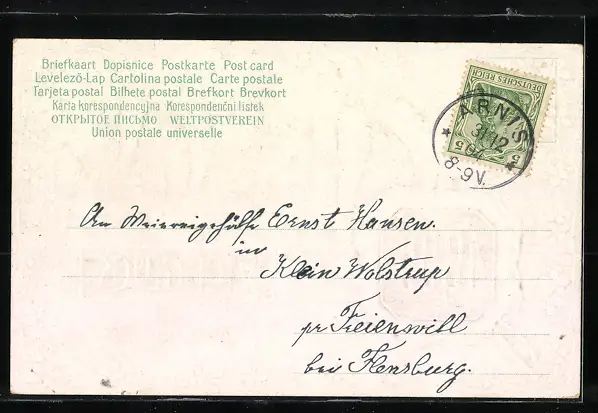 Briefkaart Dopisnice Postkarte Post card
Levelező-Lap Cartolina postale Carte postale
Tarjeta postal Bilhete postal Brefkort Brevkort
Karta korespondencyjna Korespondenční listek
ОТКРЫТОЕ ПИСЬМО WELTPOSTVEREIN
Union postale universelle
DEUTSCHES REICH
5 5
ARNIS
31 12
04
8-9V.
An Meiereigehülfe Ernst Hansen.
in
Klein Wolstrup
pr Freienwill
bei Flensburg.